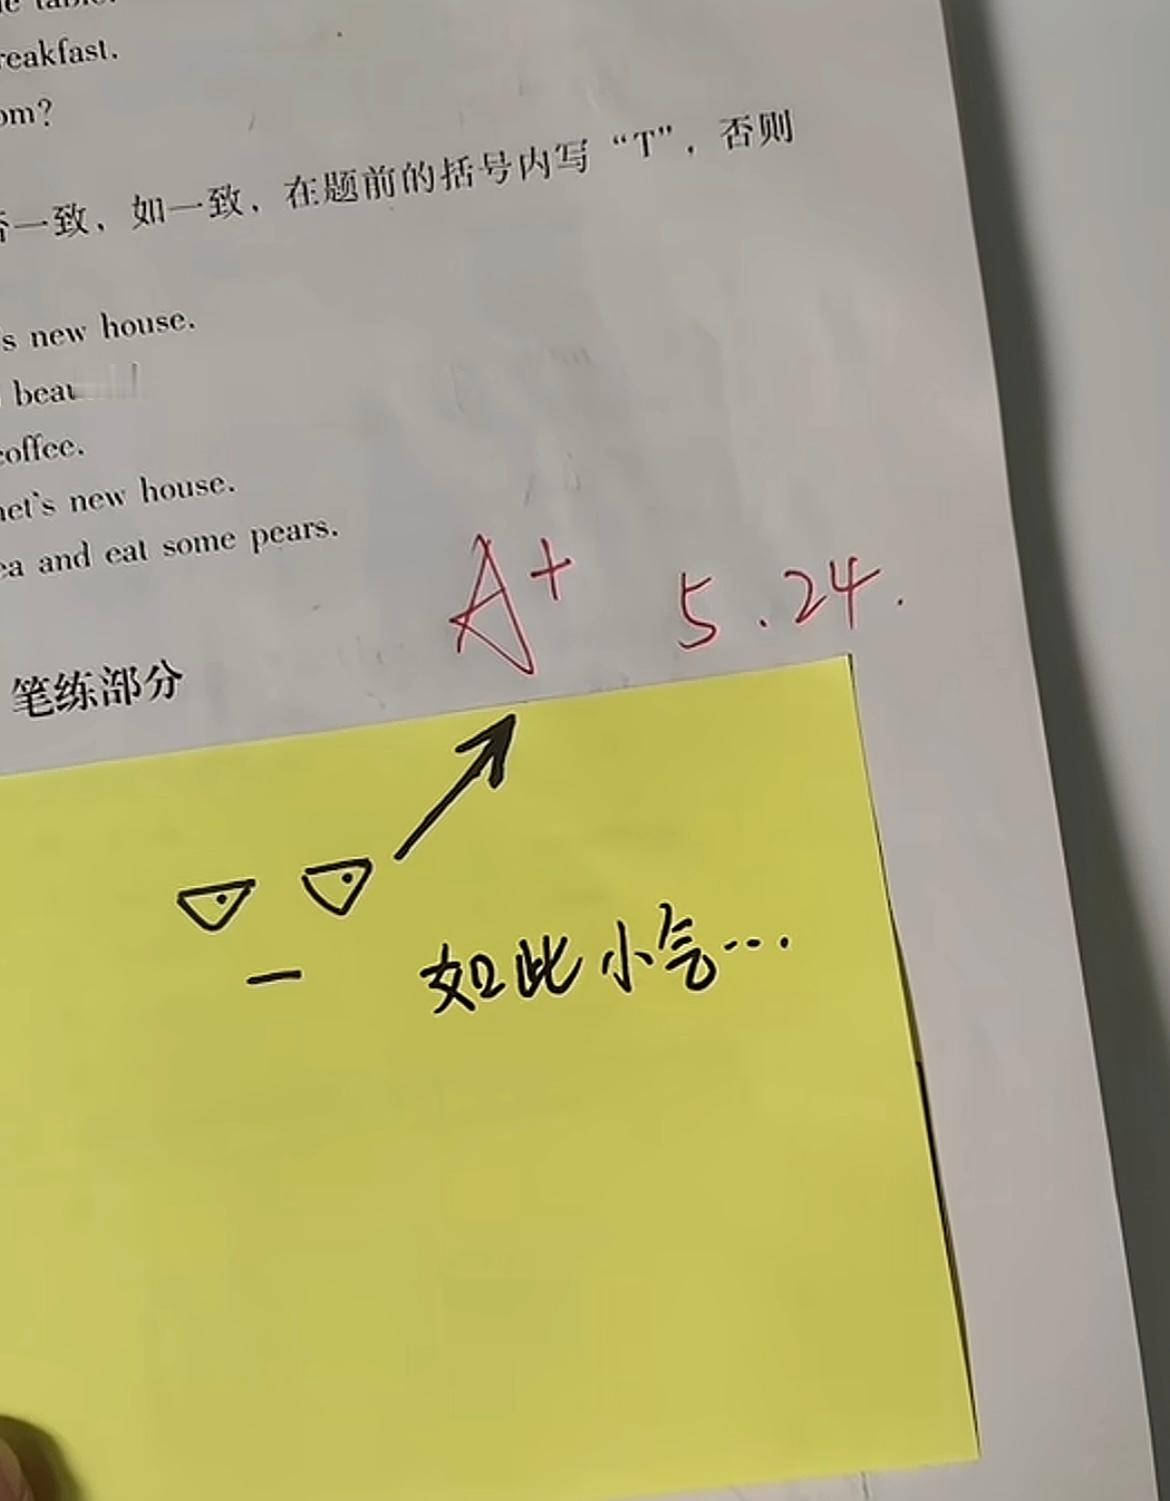 table.
reakfast.
om?
一致，如一致，在题前的括号内写“T”，否则
's new house.
coffee.
net's new house.
ea and eat some pears.
A+ 5.24.
笔练部分
如此小气…